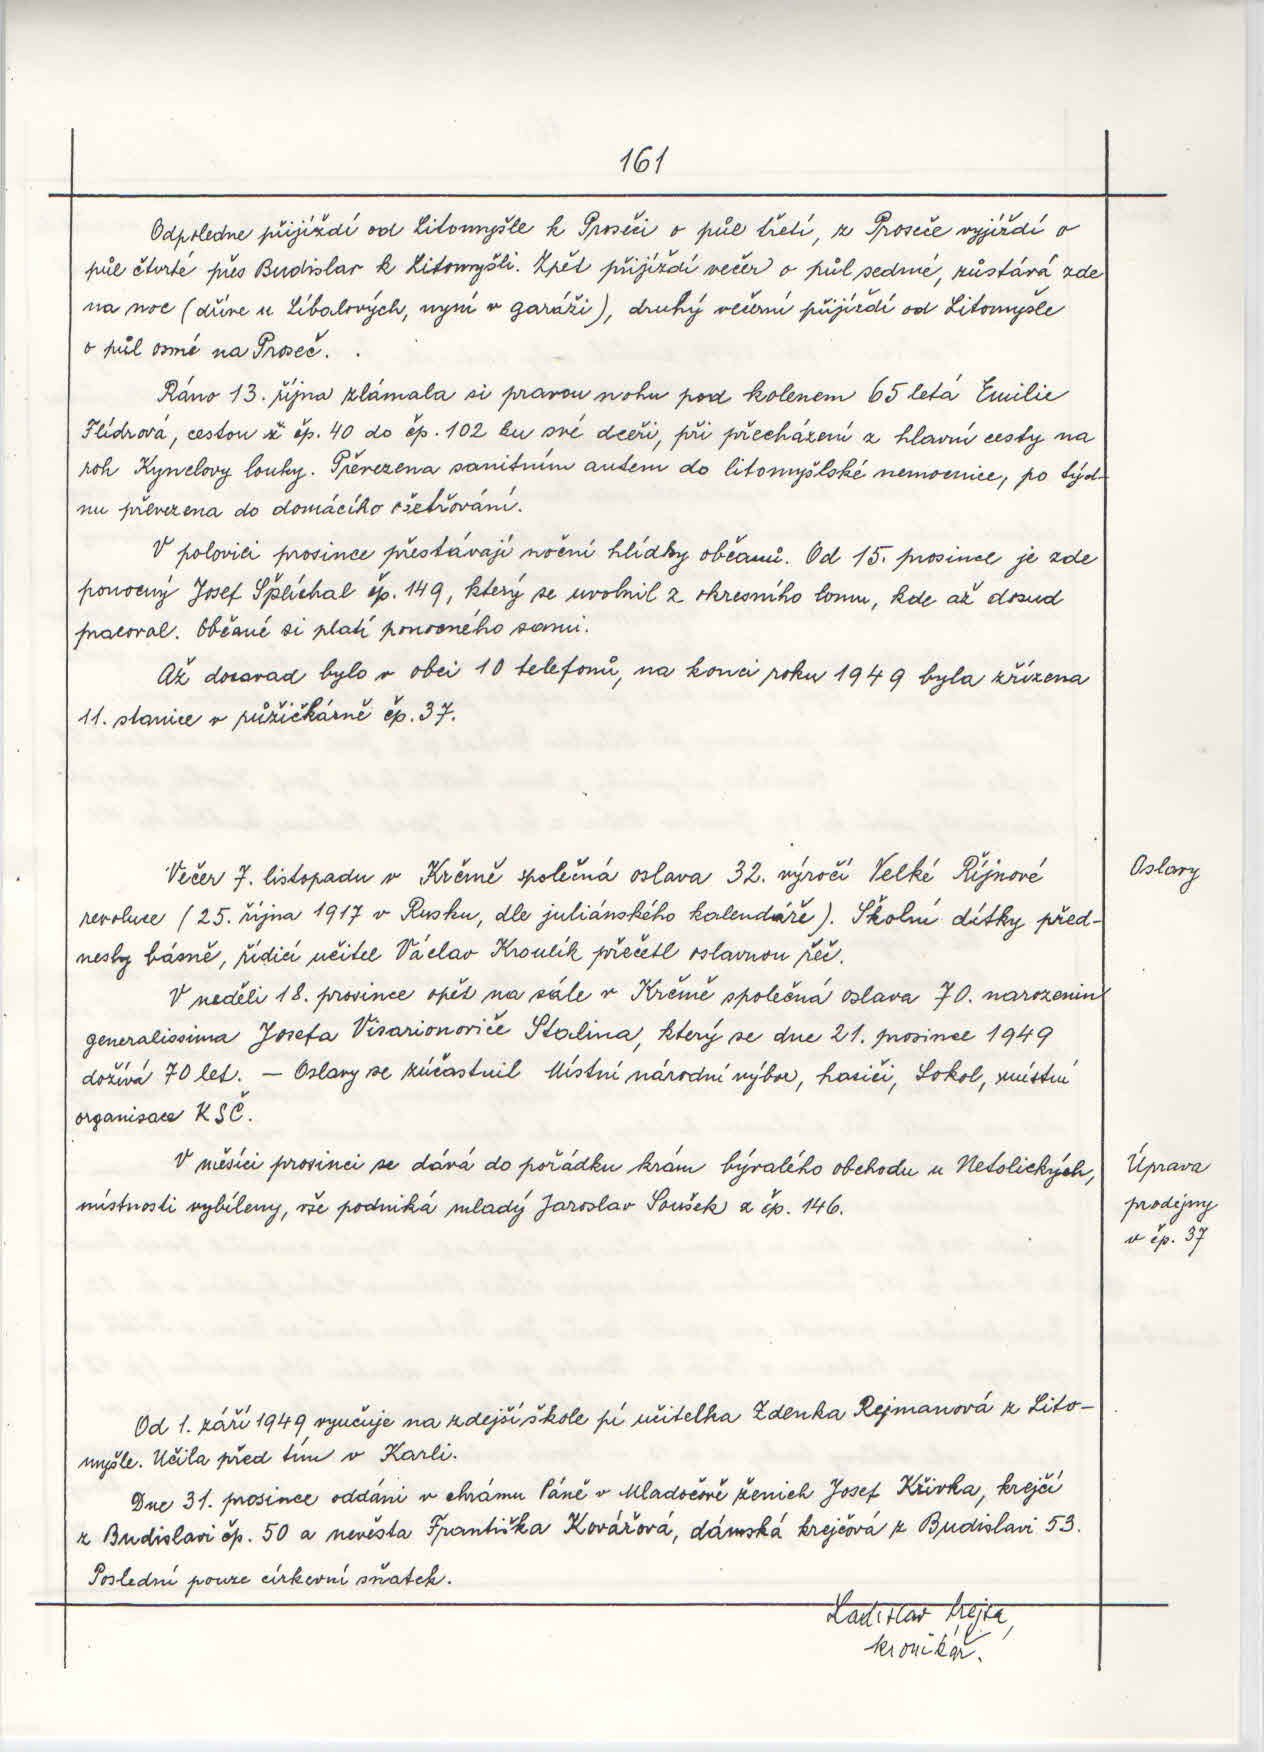 161
Odpoledne přijíždí od Litomyšle k Proseči o půl třetí, z Proseče vyjíždí o
půl čtvrté přes Budislav k Litomyšli. Zpět přijíždí večer o půl sedmé, zůstává zde
na noc (dříve u Líbalových, nyní v garáži), druhý večerní přijíždí od Litomyšle
o půl osmé na Proseč.
Ráno 13. října zlámala si pravou nohu pod kolenem 65 letá Emilie
Flídrová, cestou z čp. 40 do čp. 102 ku své dceři, při přecházení z hlavní cesty na
roh Kynclovy louky. Převezena sanitním autem do litomyšlské nemocnice, po týd-
nu převezena do domácího ošetřování.
V polovici prosince přestávají noční hlídky občanů. Od 15. prosince je zde
ponocný Josef Šplíchal čp. 149, který se uvolnil z okresního lomu, kde až dosud
pracoval. Občané si platí ponocného sami.
Až docavad bylo v obci 10 telefonů, na konci roku 1949 byla zřízena
11. stanice v růžičkárně čp. 37.
Večer 7. listopadu v Krčmě společná oslava 32. výročí Velké Říjnové
Oslavy
revoluce (25. října 1917 v Rusku, dle juliánského kalendáře). Školní dítky před-
nesly básně, řídicí učitel Václav Kroulík přečetl oslavnou řeč.
V neděli 18. prosince opět na sále v Krčmě společná oslava 70. narozenin
generalissima Josefa Visarionoviče Stalina, který se dne 21. prosince 1949
dožívá 70 let. — Oslavy se zúčastnil Místní národní výbor, hasiči, Sokol, místní
organisace KSČ.
V měsíci prosinci se dává do pořádku krám bývalého obchodu u Netolických,
Úprava
místnosti vybíleny, vše podniká mladý Jaroslav Soušek z čp. 146.
prodejny
v čp. 37
Od 1. září 1949 vyučuje na zdejší škole pí učitelka Zdenka Rejmanová z Lito-
myšle. Učila před tím v Karli.
Dne 31. prosince oddáni v chrámu Páně v Mladočově ženich Josef Křivka, krejčí
z Budislavi čp. 50 a nevěsta Františka Kovářová, dámská krejčová z Budislavi 53.
Poslední pouze církevní sňatek.
Ladislav Krejsa,
kronikář.